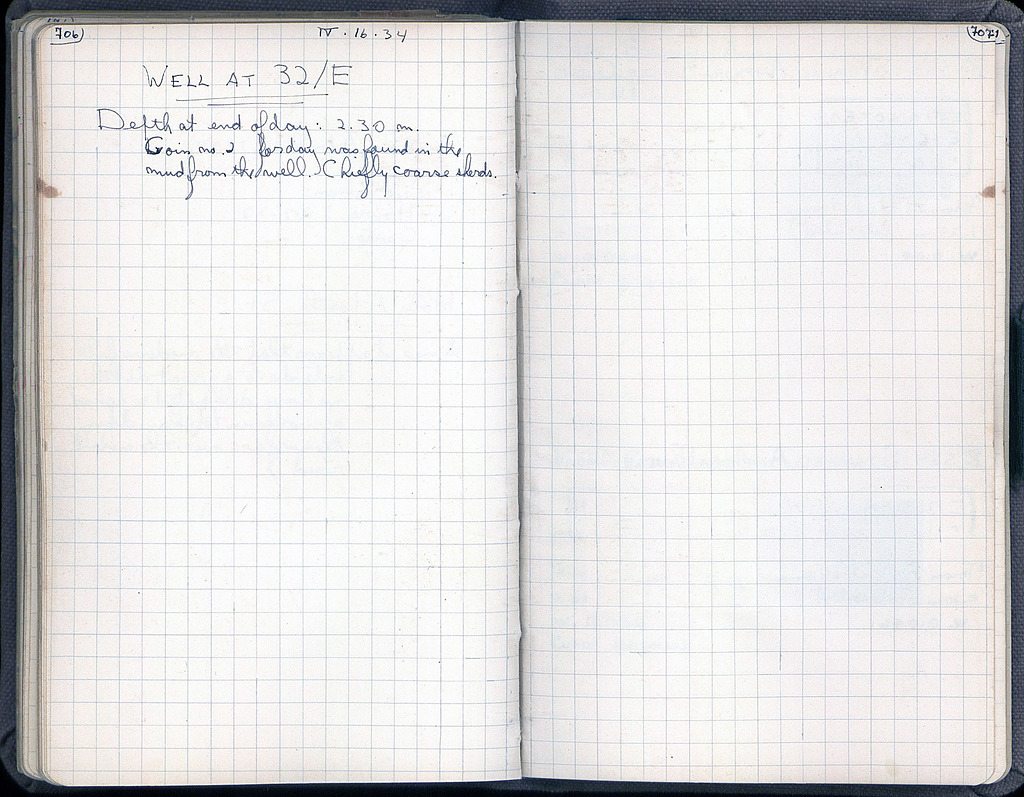 706
IV · 16 · 34
WELL AT 32/E
Depth at end of day: 2.30 m.
Coin no. 2 for day was found in the
mud from the well. Chiefly coarse sherds.